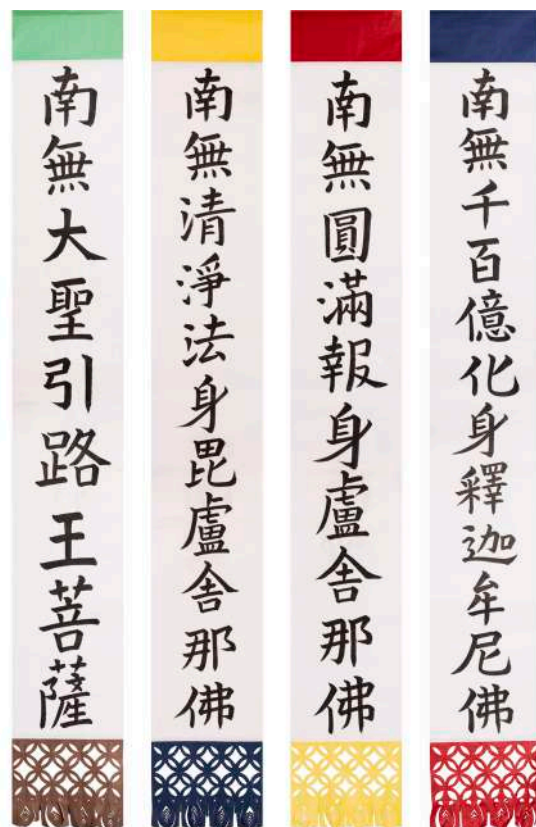 南無大聖引路王菩薩
南無清淨法身毘盧舍那佛
南無圓滿報身盧舍那佛
南無千百億化身釋迦牟尼佛